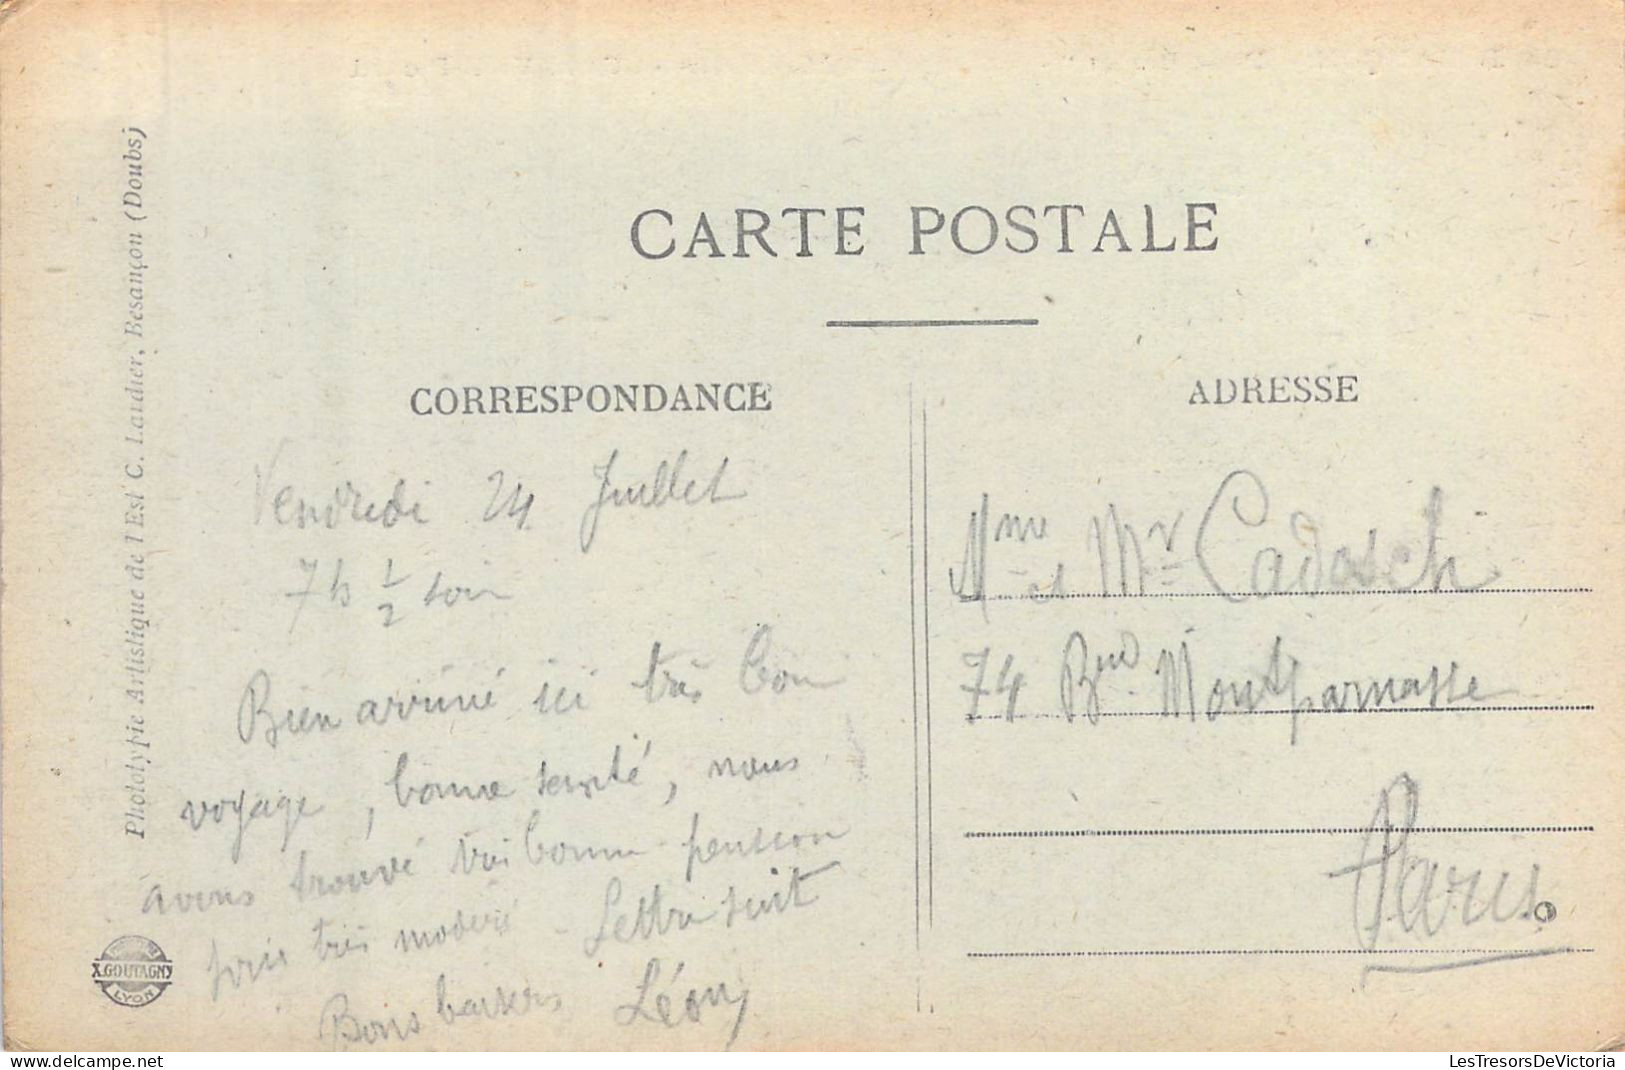 CARTE POSTALE
CORRESPONDANCE
Vendredi 24 Juillet
7 h 1/2 soir
Bien arrivé ici très bon
voyage, bonne santé, nous
avons trouvé très bonne pension
prix très modéré Lettre suit
Bons baisers Léon
ADRESSE
Mme et Mr Cadosch
74 Bvd Montparnasse
Paris.
Phototypie Artistique de l'Est C. Lardier, Besançon (Doubs)
X.GOUTAGNY
LYON
LesTresorsDeVictoria